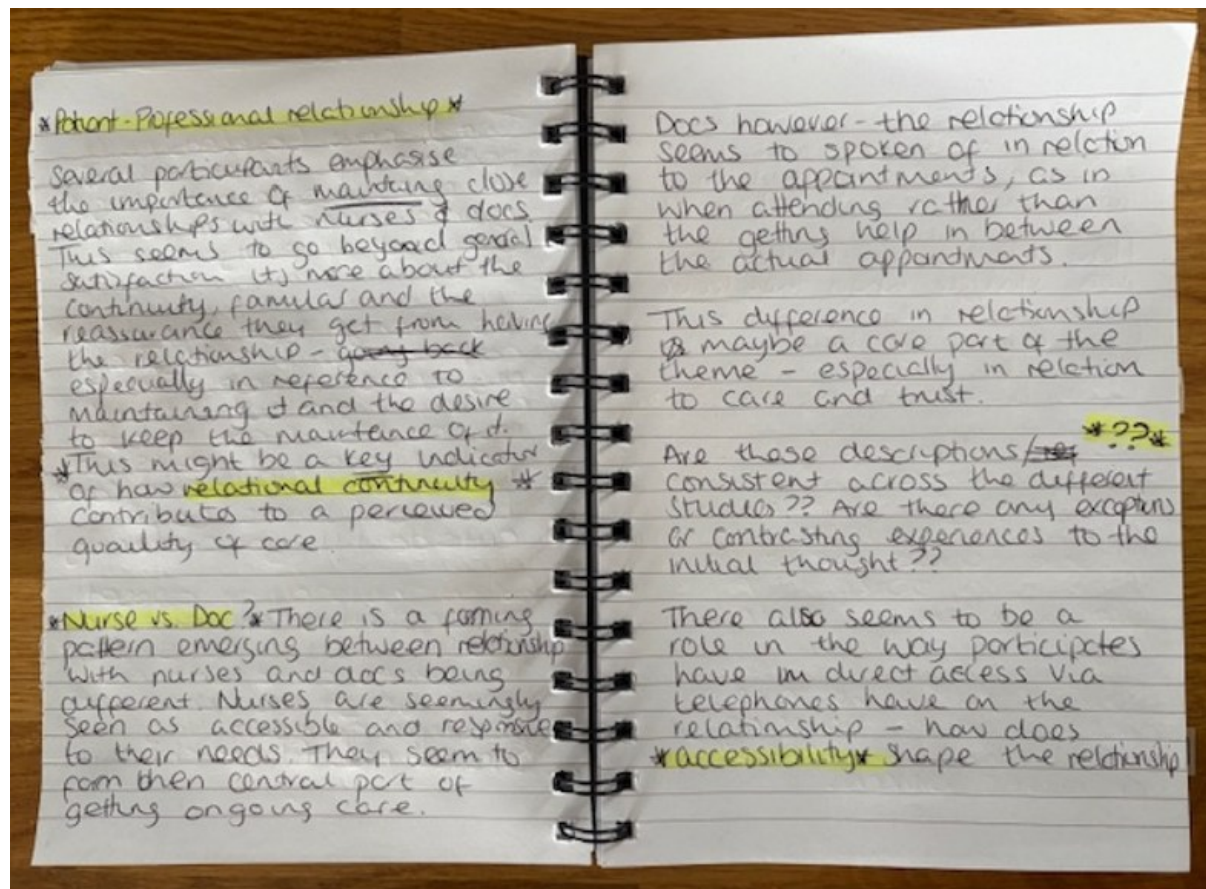 *Patient-Professional relationship*
Several participants emphasise
the importance of maintaing close
relationships with nurses & docs.
This seems to go beyond general
satisfaction its more about the
continuity, familar and the
reassurance they get from having
the relationship - going back
especially in reference to
maintaining it and the desire
to keep the maintence of it.
*This might be a key indicator
of how relational continuity *
contributes to a perceived
quality of care
*Nurse vs. Doc?* There is a forming
pattern emerging between relationship
with nurses and docs being
different. Nurses are seemingly
seen as accessible and responsive
to their needs. They seem to
form then central part of
getting ongoing care.
Docs however - the relationship
seems to spoken of in relation
to the appointments, as in
when attending rather than
the getting help in between
the actual appointments.
This difference in relationship
maybe a core part of the
theme - especially in relation
to care and trust.
*??*
Are these descriptions/
consistent across the different
studies?? Are there any exceptions
or contrasting experiences to the
initial thought??
There also seems to be a
role in the way participates
have in direct access via
telephones have on the
relationship - how does
*accessibility* shape the relationship